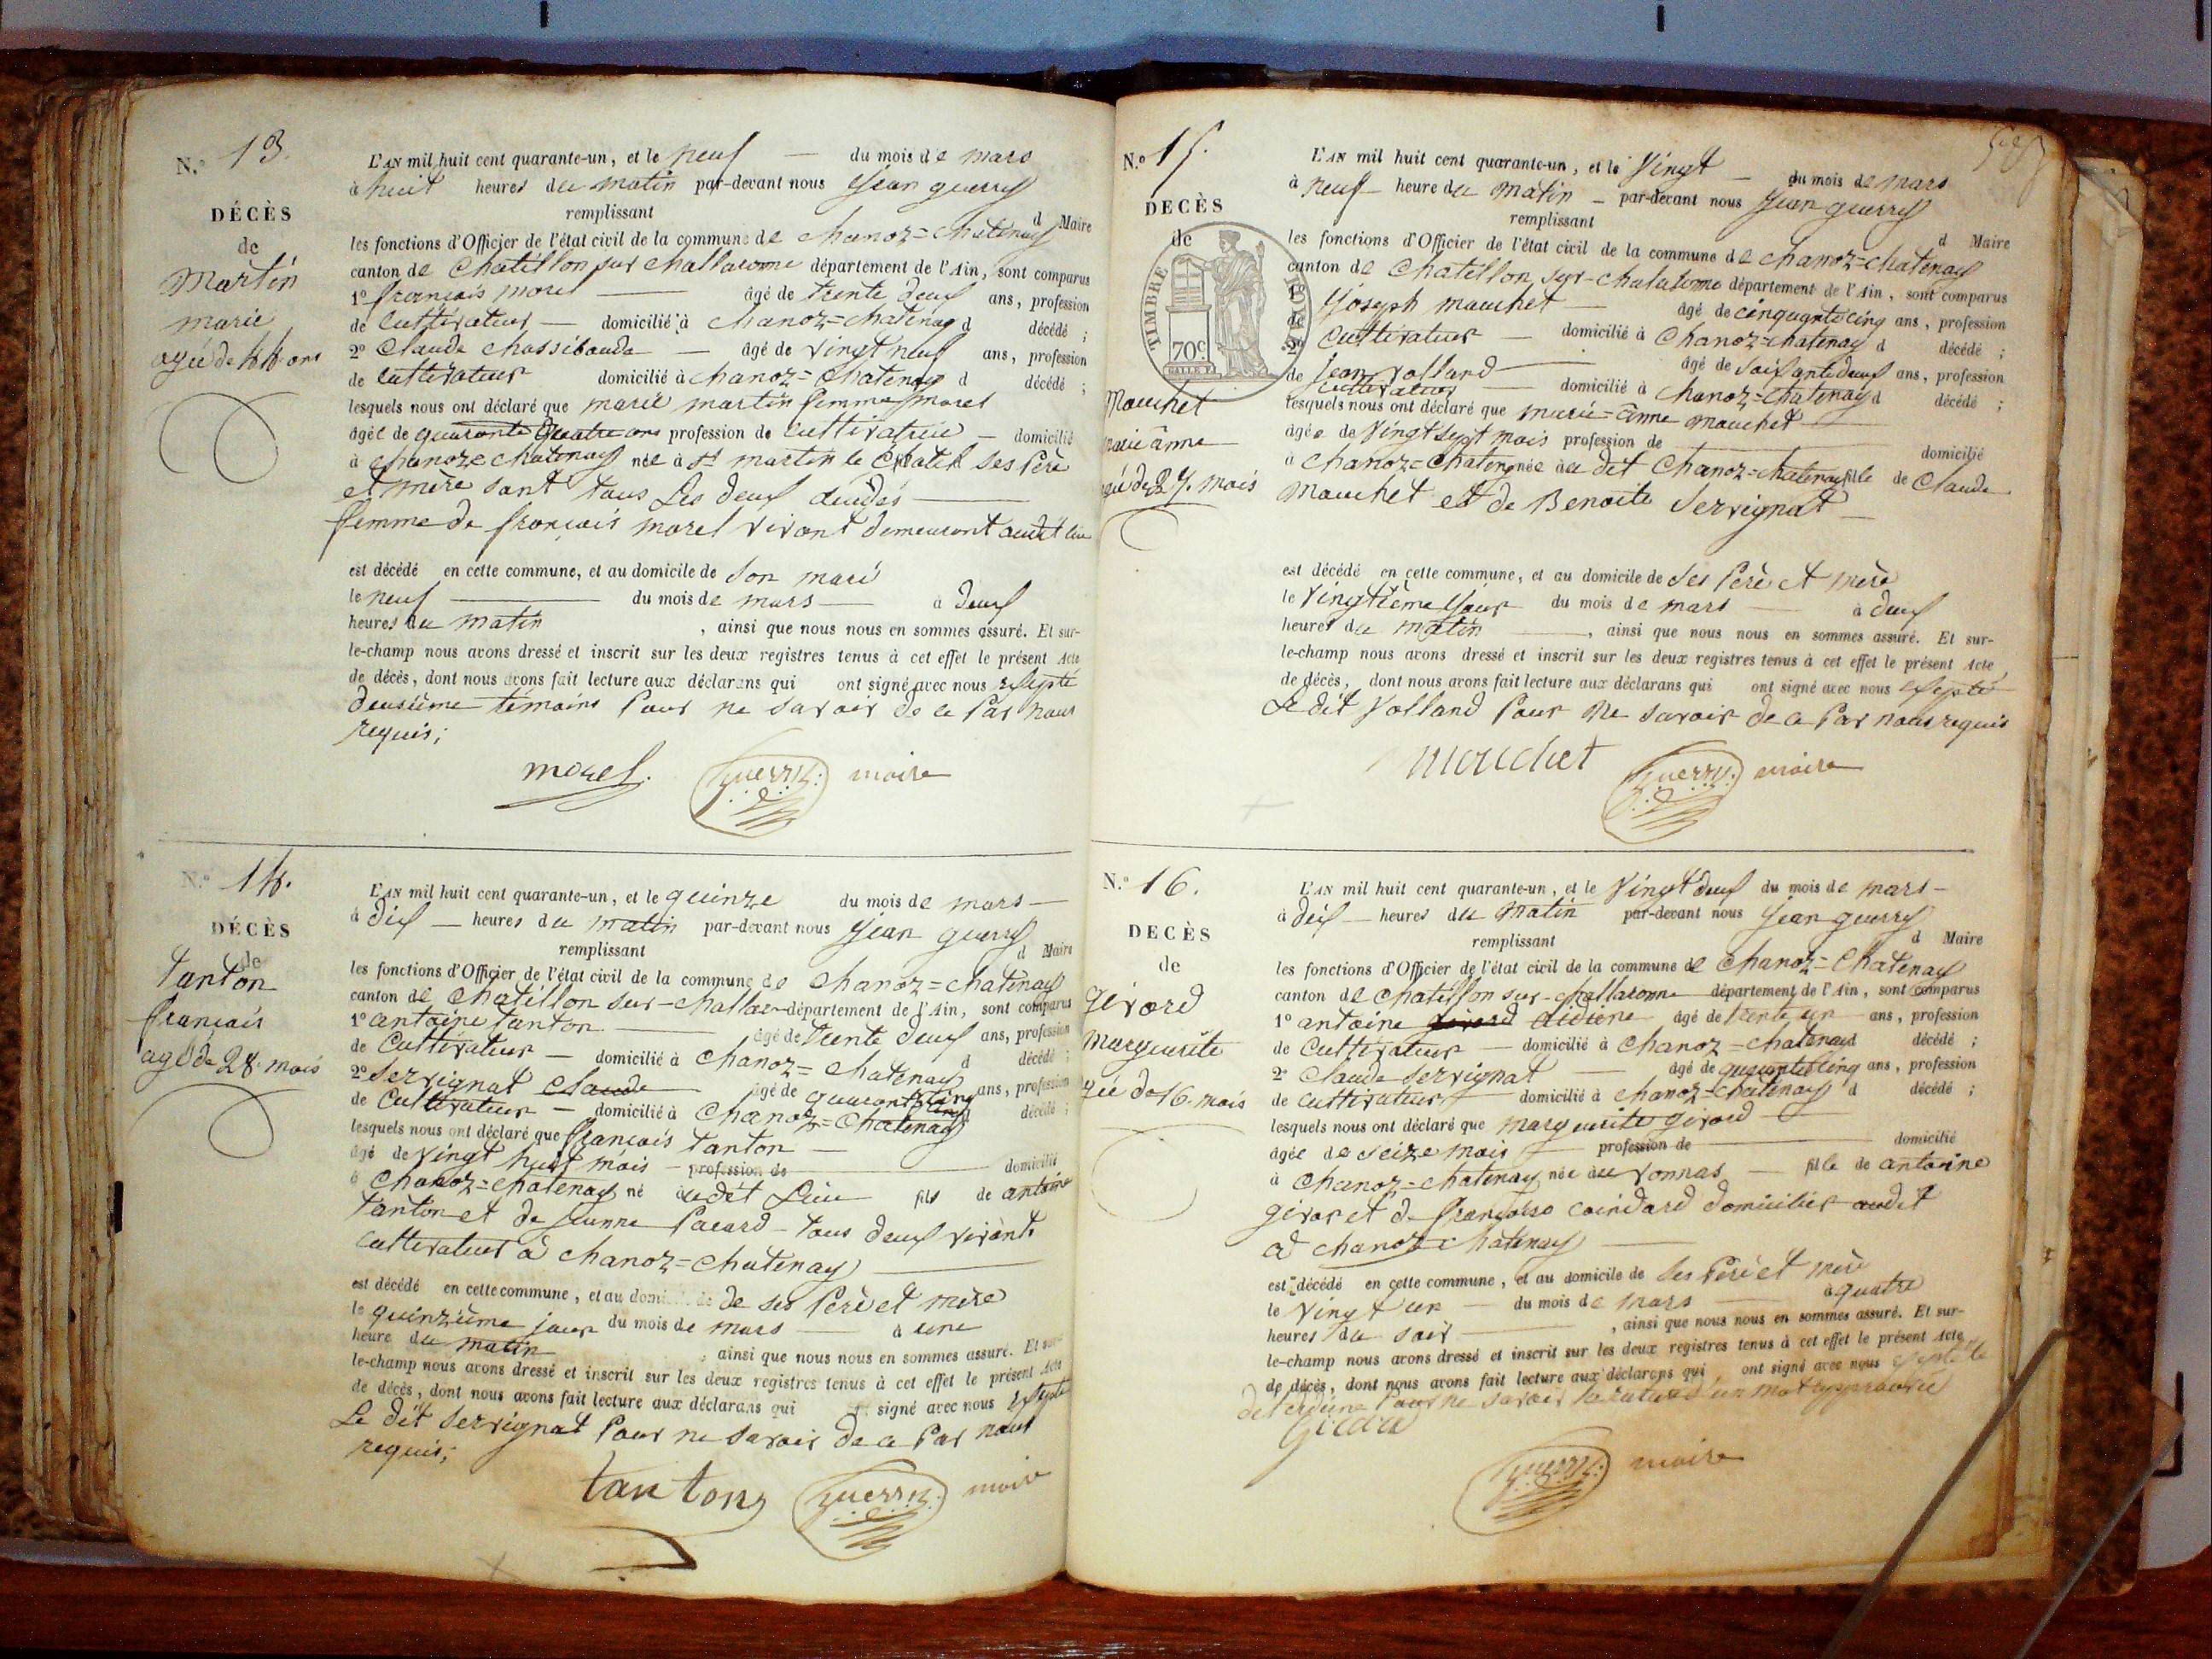 N.o 13.
DÉCÈS
de
Martin
marie
agée de 44 ans
L'AN mil huit cent quarante-un, et le neuf du mois de mars
à huit heures du matin par-devant nous Jean guerry
remplissant d Maire
les fonctions d'Officier de l'état civil de la commune de chanoz=chatenay
canton de Chatillon sur challaronne département de l'Ain, sont comparus
1o françois morel âgé de trente deux ans, profession
de Cultivateur domicilié à chanoz=chatenay d décédé ;
2o Claude chassibaude âgé de vingt neuf ans, profession
de cultivateur domicilié à chanoz=Chatenay d décédé ;
lesquels nous ont déclaré que marie martin femme morel
âgée de quarante quatre ans profession de cultivatrice domicilié
à chanoz=chatenay née à st martin le Chatel ses Père
et mère sont tous Les deux décédés
femme de françois morel vivant demeurant audit lieu
est décédé en cette commune, et au domicile de son mari
le neuf du mois de mars à deux
heures du matin , ainsi que nous nous en sommes assuré. Et sur-
le-champ nous avons dressé et inscrit sur les deux registres tenus à cet effet le présent Acte
de décès, dont nous avons fait lecture aux déclarans qui ont signé avec nous excepté
deusième témoins Pour ne savoir de ce Par nous
requis;
morel. guerry. maire
N.o 14.
DÉCÈS
de
tanton
françois
agé de 28 mois
L'AN mil huit cent quarante-un, et le quinze du mois de mars
à dix heures du matin par-devant nous Jean guerry
remplissant d Maire
les fonctions d'Officier de l'état civil de la commune de chanoz=chatenay
canton de Chatillon sur-challar département de l'Ain, sont comparus
1o antoine tanton âgé de trente deux ans, profession
de Cultivateur domicilié à Chanoz=chatenay d décédé ;
2o Servignat Claude âgé de quarante cinq ans, profession
de Cultivateur domicilié à Chanoz=Chatenay d décédé ;
lesquels nous ont déclaré que françois tanton
âgé de vingt huit mois profession de domicilié
à Chanoz=chatenay né au dit Lieu fils de antoine
tanton et de jeanne Pacard tous deux vivants
cultivateur à chanoz=chatenay
est décédé en cette commune, et au domicile de ses Père et mère
le quinzième jour du mois de mars à une
heure du matin , ainsi que nous nous en sommes assuré. Et sur-
le-champ nous avons dressé et inscrit sur les deux registres tenus à cet effet le présent Acte
de décès, dont nous avons fait lecture aux déclarans qui ont signé avec nous excepté
Le dit Servignat Pour ne savoir de ce Par nous
requis;
tanton guerry. maire
N.o 15.
DECÈS
de
TIMBRE
70c
Mouchet
marie ânne
agée de 27 mois
L'AN mil huit cent quarante-un, et le Vingt du mois de mars
à neuf heure du matin par-devant nous Jean guerry
remplissant d Maire
les fonctions d'Officier de l'état civil de la commune de chanoz=chatenay
canton de Chatillon sur-chalaronne département de l'Ain, sont comparus
1o Joseph mouchet âgé de cinquante cinq ans, profession
de Cultivateur domicilié à Chanoz=chatenay d décédé ;
2o Jean Volland âgé de soixante deux ans, profession
de cultivateur domicilié à chanoz=chatenay d décédé ;
lesquels nous ont déclaré que marie=ânne mouchet
âgée de Vingt sept mois profession de domicilié
à Chanoz=Chatenay née au dit Chanoz=chatenay fille de Claude
mouchet et de Benoite Servignat
est décédé en cette commune, et au domicile de ses Père et mère
le Vingtième Jour du mois de mars à deux
heures du matin , ainsi que nous nous en sommes assuré. Et sur-
le-champ nous avons dressé et inscrit sur les deux registres tenus à cet effet le présent Acte
de décès, dont nous avons fait lecture aux déclarans qui ont signé avec nous excepté
Le dit Volland Pour ne savoir de ce Par nous requis
mouchet guerry. maire
N.o 16.
DECÈS
de
girord
Marguerite
agée de 16 mois
L'AN mil huit cent quarante-un, et le Vingt deux du mois de mars
à dix heures du matin par-devant nous Jean guerry
remplissant d Maire
les fonctions d'Officier de l'état civil de la commune de chanoz=Chatenay
canton de Chatillon sur-challaronne département de l'Ain, sont comparus
1o antoine girord âgé de trente un ans, profession
de Cultivateur domicilié à Chanoz=chatenay d décédé ;
2o Claude Servignat âgé de quarante cinq ans, profession
de cultivateur domicilié à chanoz=chatenay d décédé ;
lesquels nous ont déclaré que marguerite girord
âgée de seize mois profession de domicilié
à Chanoz=chatenay née au Vonnas fille de antoine
giror et de françoise coindard domicilier audit
à chanoz=chatenay
est décédé en cette commune, et au domicile de ses Père et mère
le Vingt un du mois de mars à quatre
heures du soir , ainsi que nous nous en sommes assuré. Et sur-
le-champ nous avons dressé et inscrit sur les deux registres tenus à cet effet le présent Acte
de décès, dont nous avons fait lecture aux déclarans qui ont signé avec nous excepté le
Pour ne savoir la rature d'un mot approuvée
guerry. maire